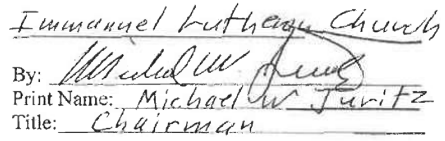 Immanuel Lutheran Church
By: Michael W Juritz
Print Name: Michael W Juritz
Title: Chairman